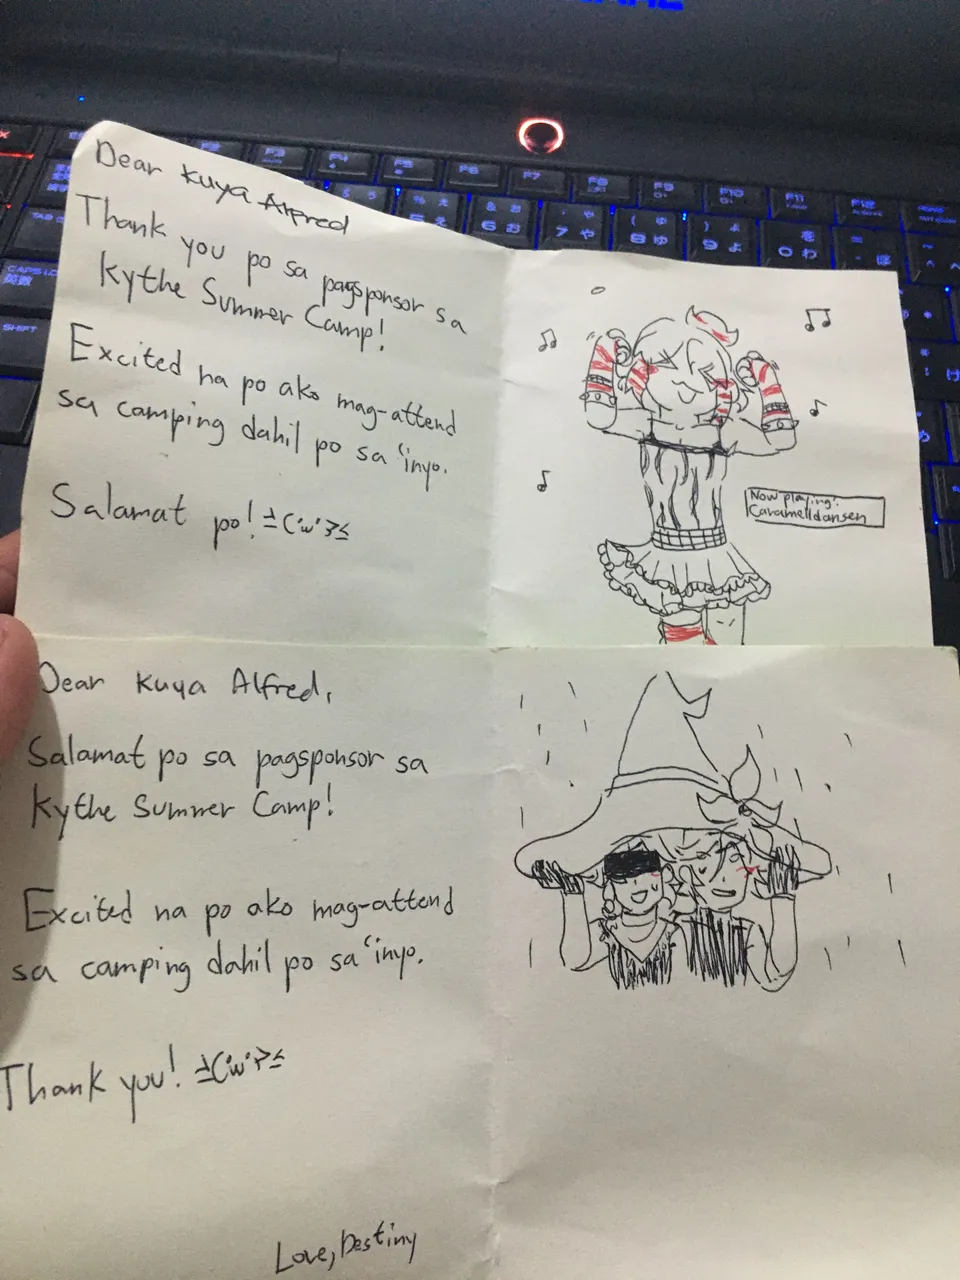 Dear Kuya Alfred
Thank you po sa pagsponsor sa
Kythe Summer Camp!
Excited na po ako mag-attend
sa camping dahil po sa 'inyo.
Salamat po!
Now playing:
Caramelldansen
Dear Kuya Alfred,
Salamat po sa pagsponsor sa
Kythe Summer Camp!
Excited na po ako mag-attend
sa camping dahil po sa 'inyo.
Thank you!
Love, Destiny
F3
F4
F5
F6
F7
F8
F9
F10
F11
F12
TAB
CAPS LOCK
英数
SHIFT